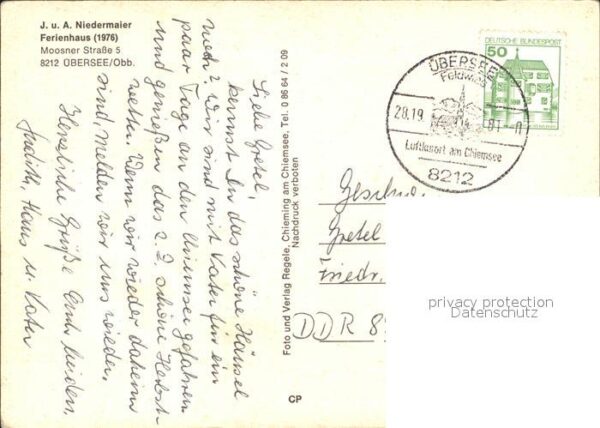 J. u. A. Niedermaier
Ferienhaus (1976)
Moosner Straße 5
8212 ÜBERSEE/Obb.
Liebe Gretel,
kennst du das schöne Häusel
noch? Wir sind mit Vater für ein
paar Tage an den Chiemsee gefahren
und genießen das z. Z. schöne Herbst-
wetter. Wenn wir wieder daheim
sind melden wir uns wieder.
Herzliche Grüße Euch beiden,
Judith, Hans u. Vater
Foto und Verlag Regele, Chieming am Chiemsee, Tel. 0 86 64 / 2 09
Nachdruck verboten
CP
DEUTSCHE BUNDESPOST
50
ÜBERSEE
Feldwies
28.19
81
Luftkurort am Chiemsee
8212
Geschw.
Gretel
Friedr.
DDR 8
privacy protection
Datenschutz